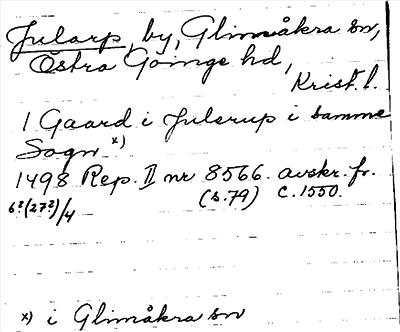 Jularp, by, Glimåkra sn,
Östra Göinge hd,
Krist. l.
1 Gaard i Julerup i samme
Sogn x)
1498 Rep. II nr 8566. avskr. fr.
6?(27?)/4 (s. 79) c. 1550.
x) i Glimåkra sn